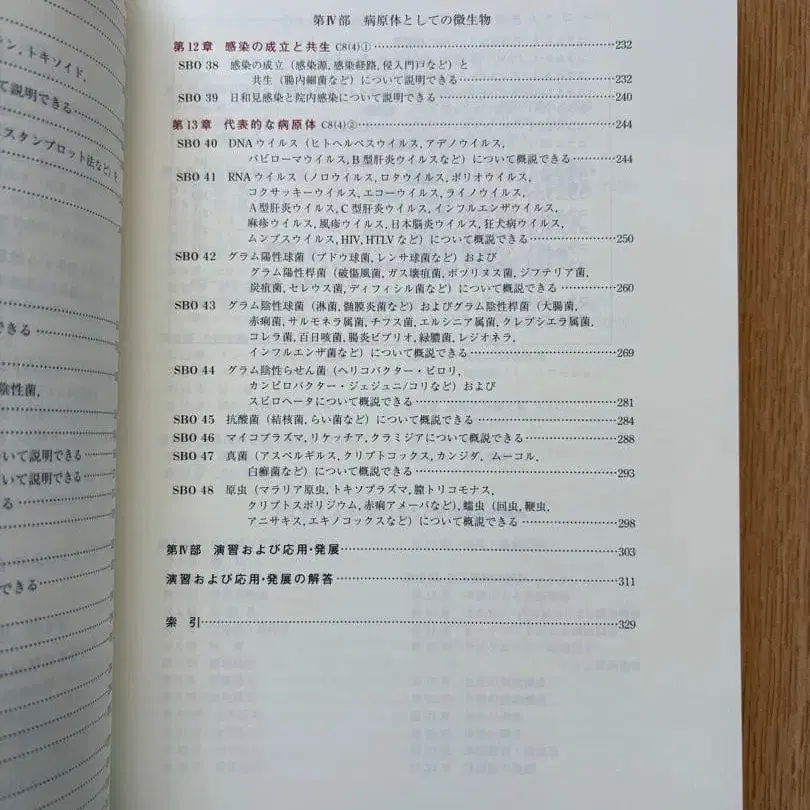 ン,トキソイド,
て説明できる
スタンブロット法など)を
できる
陰性菌,
いて説明できる
いて説明できる
る
できる
第Ⅳ部 病原体としての微生物
第12章 感染の成立と共生 C8(4)① 232
SBO 38 感染の成立(感染源,感染経路,侵入門戸など)と
共生(腸内細菌など)について説明できる 232
SBO 39 日和見感染と院内感染について説明できる 240
第13章 代表的な病原体 C8(4)② 244
SBO 40 DNAウイルス(ヒトヘルペスウイルス,アデノウイルス,
パピローマウイルス,B型肝炎ウイルスなど)について概説できる 244
SBO 41 RNAウイルス(ノロウイルス,ロタウイルス,ポリオウイルス,
コクサッキーウイルス,エコーウイルス,ライノウイルス,
A型肝炎ウイルス,C型肝炎ウイルス,インフルエンザウイルス,
麻疹ウイルス,風疹ウイルス,日本脳炎ウイルス,狂犬病ウイルス,
ムンプスウイルス,HIV,HTLVなど)について概説できる 250
SBO 42 グラム陽性球菌(ブドウ球菌,レンサ球菌など)および
グラム陽性桿菌(破傷風菌,ガス壊疽菌,ボツリヌス菌,ジフテリア菌,
炭疽菌,セレウス菌,ディフィシル菌など)について概説できる 260
SBO 43 グラム陰性球菌(淋菌,髄膜炎菌など)およびグラム陰性桿菌(大腸菌,
赤痢菌,サルモネラ属菌,チフス菌,エルシニア属菌,クレブシエラ属菌,
コレラ菌,百日咳菌,腸炎ビブリオ,緑膿菌,レジオネラ,
インフルエンザ菌など)について概説できる 269
SBO 44 グラム陰性らせん菌(ヘリコバクター・ピロリ,
カンピロバクター・ジェジュニ/コリなど)および
スピロヘータについて概説できる 281
SBO 45 抗酸菌(結核菌,らい菌など)について概説できる 284
SBO 46 マイコプラズマ,リケッチア,クラミジアについて概説できる 288
SBO 47 真菌(アスペルギルス,クリプトコックス,カンジダ,ムーコル,
白癬菌など)について概説できる 293
SBO 48 原虫(マラリア原虫,トキソプラズマ,腟トリコモナス,
クリプトスポリジウム,赤痢アメーバなど),蠕虫(回虫,鞭虫,
アニサキス,エキノコックスなど)について概説できる 298
第Ⅳ部 演習および応用・発展 303
演習および応用・発展の解答 311
索引 329